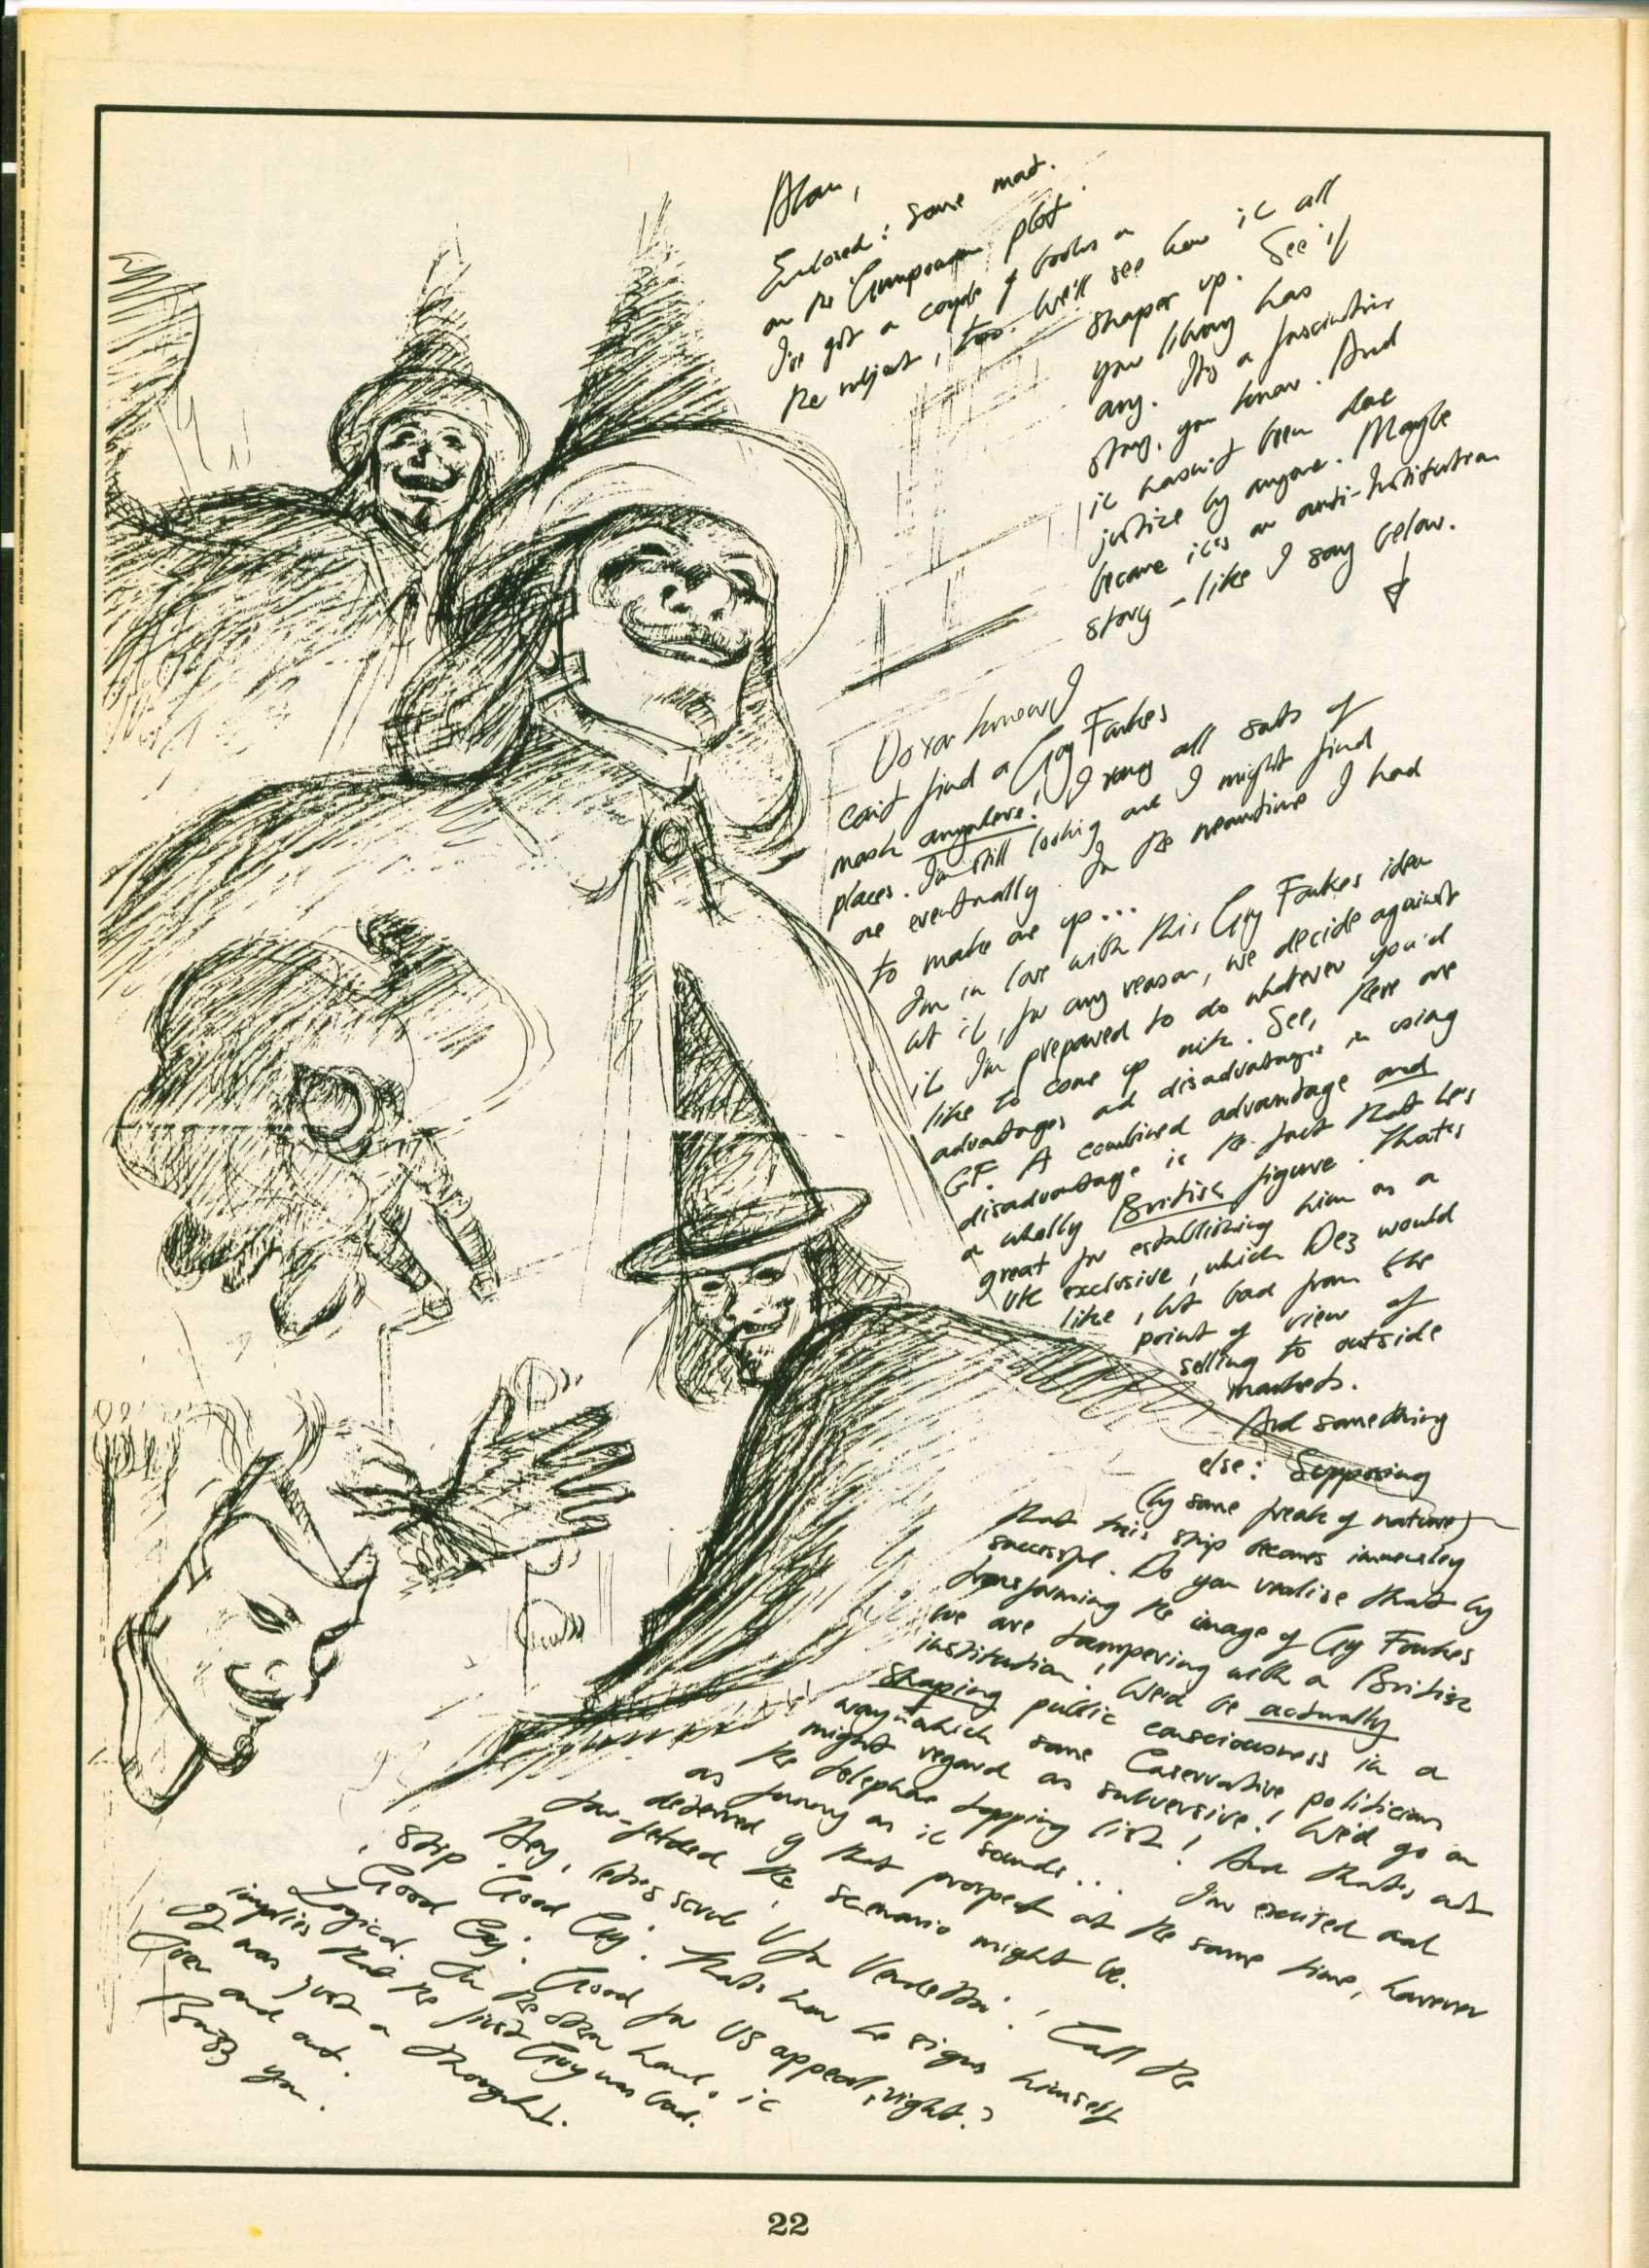 Alan,
Enclosed: some mat.
on the Gunpowder plot.
I've got a couple of books on
the subject, too. We'll see how it all
shapes up. See if
your library has
any. It's a fascinating
story, you know. And
it hasn't been done
justice by anyone. Maybe
because it's an anti-Institution
story – like I say below.
Do you know I
can't find a Guy Fawkes
mask anywhere! I rang all sorts of
places. I'm still looking and I might find
one eventually. In the meantime I had
to make one up...
I'm in love with this Guy Fawkes idea
but if, for any reason, we decide against
it I'm prepared to do whatever you'd
like to come up with. See, there are
advantages and disadvantages in using
GF. A combined advantage and
disadvantage is the fact that he's
a wholly British figure. That's
great for establishing him as a
UK exclusive, which Dez would
like, but bad from the
point of view of
selling to outside
markets.
And something
else: Supposing
(by some freak of nature)
that this strip becomes immensley
successful. Do you realise that by
transforming the image of Guy Fawkes
we are tampering with a British
institution! We'd be actually
shaping public consciousness in a
way which some Conservative politicians
might regard as subversive! We'd go on
the telephone tapping list! And that's not
as funny as it sounds... I'm excited and
deterred by that prospect at the same time, however
far-fetched the scenario might be.
Hey, let's scrub 'V for Vendetta'! Call the
strip 'Good Guy'. That's how he signs himself
'Good Guy'. Good for US appeal, right?
Logical. On the other hand, it
implies that the first Guy was bad.
It was just a thought.
Over and out.
Buzz you.
22